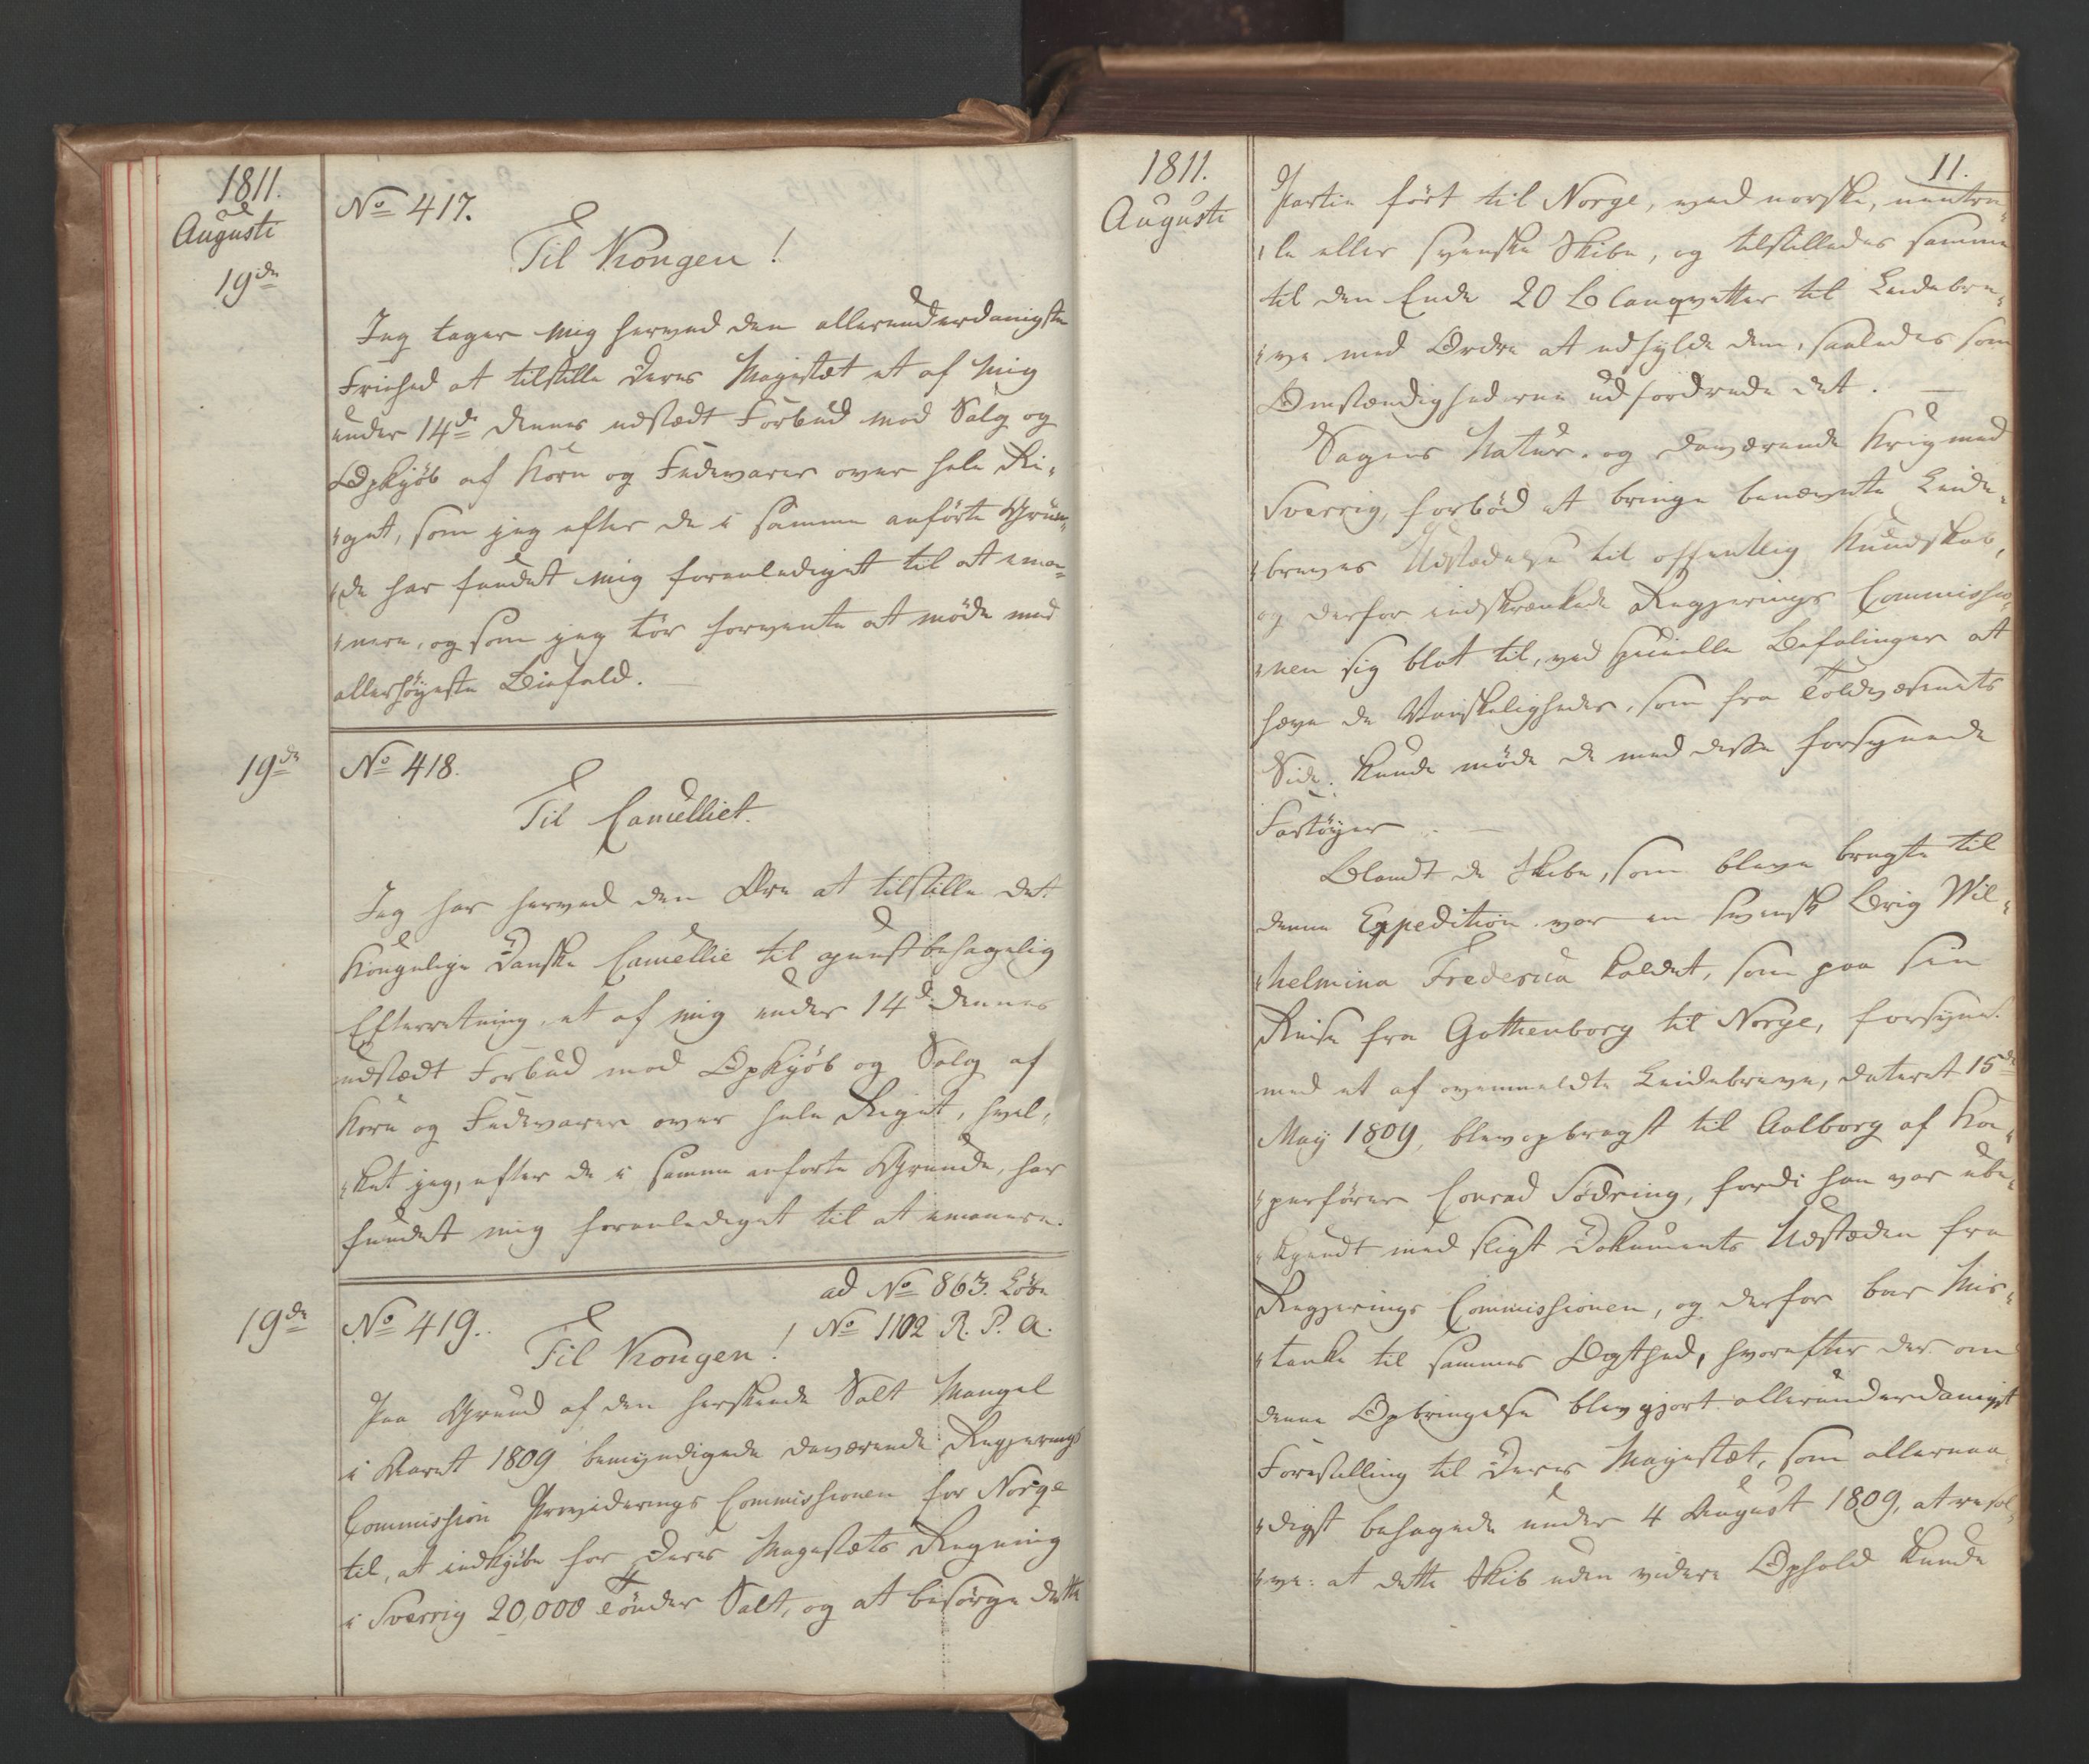 1811.
Augusti
19de
No 417.
Til Kongen!
Jeg tager mig herved den allerunderdanigste
Friehed at tilstille Deres Majestæt et af mig
under 14de dennes udstædt Forbud mod Salg og
Opkjöb af Korn og Fedevarer over hele Ri-
get, som jeg efter de i samme anförte Grün-
de har fundet mig foranlediget til at ema-
nere, og som jeg tör forvente at möde med
allerhöyeste Biefald.
19de
No 418.
Til Cancelliet.
Jeg har herved den Ære at tilstille det
Kongelige Danske Cancellie til gunstbehagelig
Efterretning, et af mig under 14de dennes
udstædt Forbud mod Opkjöb og Salg af
Korn og Fedevarer over hele Riget, hvil-
ket jeg, efter de i samme anforte Grunde, har
fundet mig foranlediget til at emanere.
19de
No 419.
ad No 863. Löbe
No 1102 R. P. A.
Til Kongen!
Paa Grund af den herskende Salt Mangel
i Aaret 1809 bemyndigede daværende Regjerings
Commission Providerings Commissionen for Norge
til, at indkjöbe for Deres Majestæts Regning
i Sverrig 20,000 Tönder Salt, og at besörge dette
1811.
Augusti
11.
Partie fört til Norge, med norske, neutra-
le eller svenske Skibe, og tilstilledes samme
til den Ende 20 Blanqvetter til Leidebre-
ve med Ordre at udfylde dem, saaledes som
Omstændighederne udfordrede det.
Sagens Natur og daværende Krig med
Sverrig, forböd at bringe benævnte Leide-
breves Udstædelse til offentlig Kundskab,
og derfor indskrænkede Regjerings Commissio-
nen sig blot til, ved specielle Befalinger at
hæve de Vanskeligheder, som fra Toldvæsenets
Side kunde möde de med disse forsynede
Fartöyer.
Blandt de Skibe, som bleve brugte til
denne Expedition var en svensk Brig Wil-
helmina Frederica kaldet, som paa sin
Reise fra Gothenborg til Norge, forsynet
med et af ovenmeldte Leidebreve, dateret 15de
May 1809, blev opbragt til Aalborg af Ka-
perförer Conrad Södring, fordi han var ube-
kjendt med sligt Dokuments Udstæden fra
Regjerings Commissionen, og derfor bar Mis-
tanke til sammes Ægthed, hvorefter der om
denne Opbringelse blev gjort allerunderdanigst
Forestilling til Deres Majestæt, som allernaa-
digst behagede under 4 August 1809, at resol-
ve: at dette Skib uden videre Ophold kunde